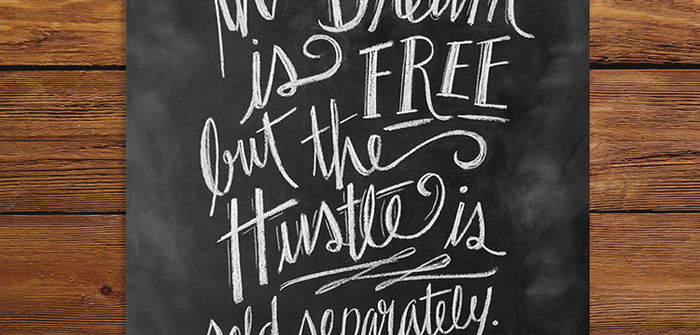 Dream
is FREE
but the
Hustle is
sold separately.